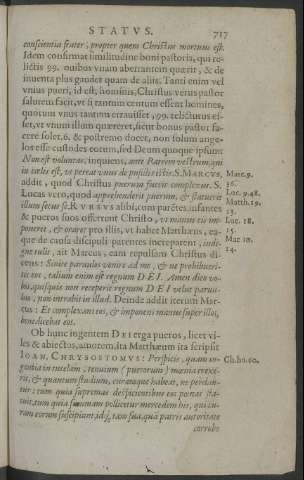 STATVS.
717
conscientia frater, propter quem Christus mortuus est.
Idem confirmat similitudine boni pastoris, qui re-
lictis 99. ouibus vnam aberrantem quærit, & de
inuenta plus gaudet quam de aliis. Tanti enim vel
vnius pueri, id est, hominis, Christus verus pastor
salutem facit, vt si tantum centum essent homines,
quorum vnus tantum errauisset, 99. relicturus es-
set, vt vnum illum quæreret, sicut bonus pastor fa-
cere solet. 6. & postremo docet, non solum ange-
los esse custodes eorum, sed Deum quoque ipsum:
Non est voluntas, inquiens, ante Patrem vestrum, qui
in cœlis est, vt pereat vnus de pusillis istis. S. MARCVS,
addit, quod Christus puerum fuerit complexus. S.
Lucas vero, quod apprehenderit puerum, & statuerit
illum secus se. RVRSVS alibi, cum paruͦtes infantes
& pueros suos offerrent Christo, vt manus eis im-
poneret, & oraret pro illis, vt habet Matthæus, ea-
que de causa discipuli parentes increparent, indi-
gne tulit, ait Marcus, eam repulsam Christus di-
cens: Sinite paruulos venire ad me, & ne prohibueri-
tis eos, talium enim est regnum DEI. Amen dico vo-
bis, quisquis non receperit regnum DEI velut paruu-
lus, non intrabit in illud. Deinde addit iterum Mar-
cus: Et complexans eos, & imponens manus super illos,
benedicebat eos.
Ob hunc ingentem DEI erga pueros, licet vi-
les & abiectos, amorem, ita Matthæum ita scripsit
IOAN. CHRYSOSTOMVS: Perspicis, quam in-
gentia in tutelam, tenuium (puerorum) mœnia erexe-
rit, & quantum studium, curamque habeat, ne perdan-
tur: cum quia supremas despicientibus eos pœnas sta-
tuit, tum quia summam pollicetur mercedem his, qui cu-
ram eorum suscipiunt, idq́; tam sua, quā patris autoritate
corrobo
Marc. 9.
36.
Luc. 9. 48.
Matth. 19.
13.
Luc. 18.
15.
Mar. 10.
14.
Ch. ho. 60.